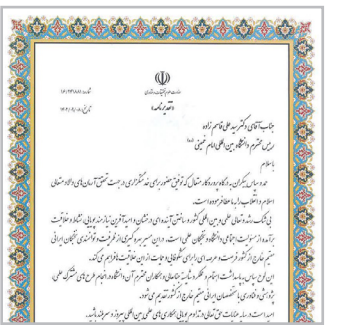 شماره: ۱۶/۲۳۱۸۸۱
تاریخ: ۱۴۰۲/۰۹/۰۸
وزارت علوم، تحقیقات و فناوری
«تقدیرنامه»
جناب آقای دکتر سید علی قاسم زاده
رییس محترم دانشگاه بین المللی امام خمینی (ره)
با سلام
حمد و سپاس بیکران به درگاه پروردگار متعال که توفیق حضور برای خدمتگزاری در جهت تحقق آرمان های والا و متعالی
اسلام و انقلاب را به ما عطا فرموده است.
بی شک رشد و تعالی علمی و بین المللی کشور و ساختن آینده ای درخشان و امیدآفرین نیازمند پویایی، نشاط و خلاقیت
برآمده از مسولیت اجتماعی دانشگاه و نخبگان علمی است. در این مسیر بهره گیری از ظرفیت و توانمندی نخبگان ایرانی
مقیم خارج از کشور فرصت و عرصه ای را برای شکوفایی و حمایت از این خلاقیت ها فراهم می کند.
این لوح سپاس پاسداشت اهتمام و عملکرد شایسته جنابعالی و همکاران محترم آن دانشگاه در انجام طرح های مشترک علمی،
پژوهشی و فناوری با متخصصان ایرانی مقیم خارج از کشور تقدیم می شود.
امید است در سایه عنایات حق تعالی و تداوم پویایی همکاری های علمی بین المللی پیروز و سربلند باشید.